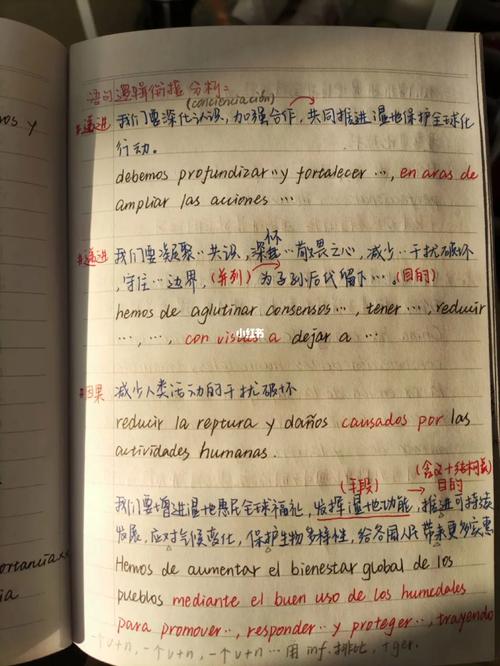 语句逻辑衔接分析:
(concienciación)
#递进 我们要深化认识,加强合作,共同推进湿地保护全球化
行动。
debemos profundizar ‥y fortalecer …, en aras de
ampliar las acciones …
#递进 我们要凝聚‥共识,深怀…敬畏之心,减少…干扰破坏
,守住…边界,(并列) 为子孙后代留下…。(目的)
hemos de aglutinar consensos…, tener…, reducir
…, …, con vistas a dejar a …
小红书
#因果 减少人类活动的干扰破坏
reducir la reptura y daños causados por las
actividades humanas.
(手段) (含义+结构式)
目的
我们要增进湿地惠民全球福祉,发挥湿地功能,推进可持续
发展,应对气候变化,保护生物多样性,给各国人民带来更多实惠
Hemos de aumentar el bienestar global de los
pueblos mediante el buen uso de los humedales
para promover‥, responder ‥ y proteger‥, trayendo
-个v+n, -个v+n, -个v+n … 用 inf.
ortancia
ia
os y